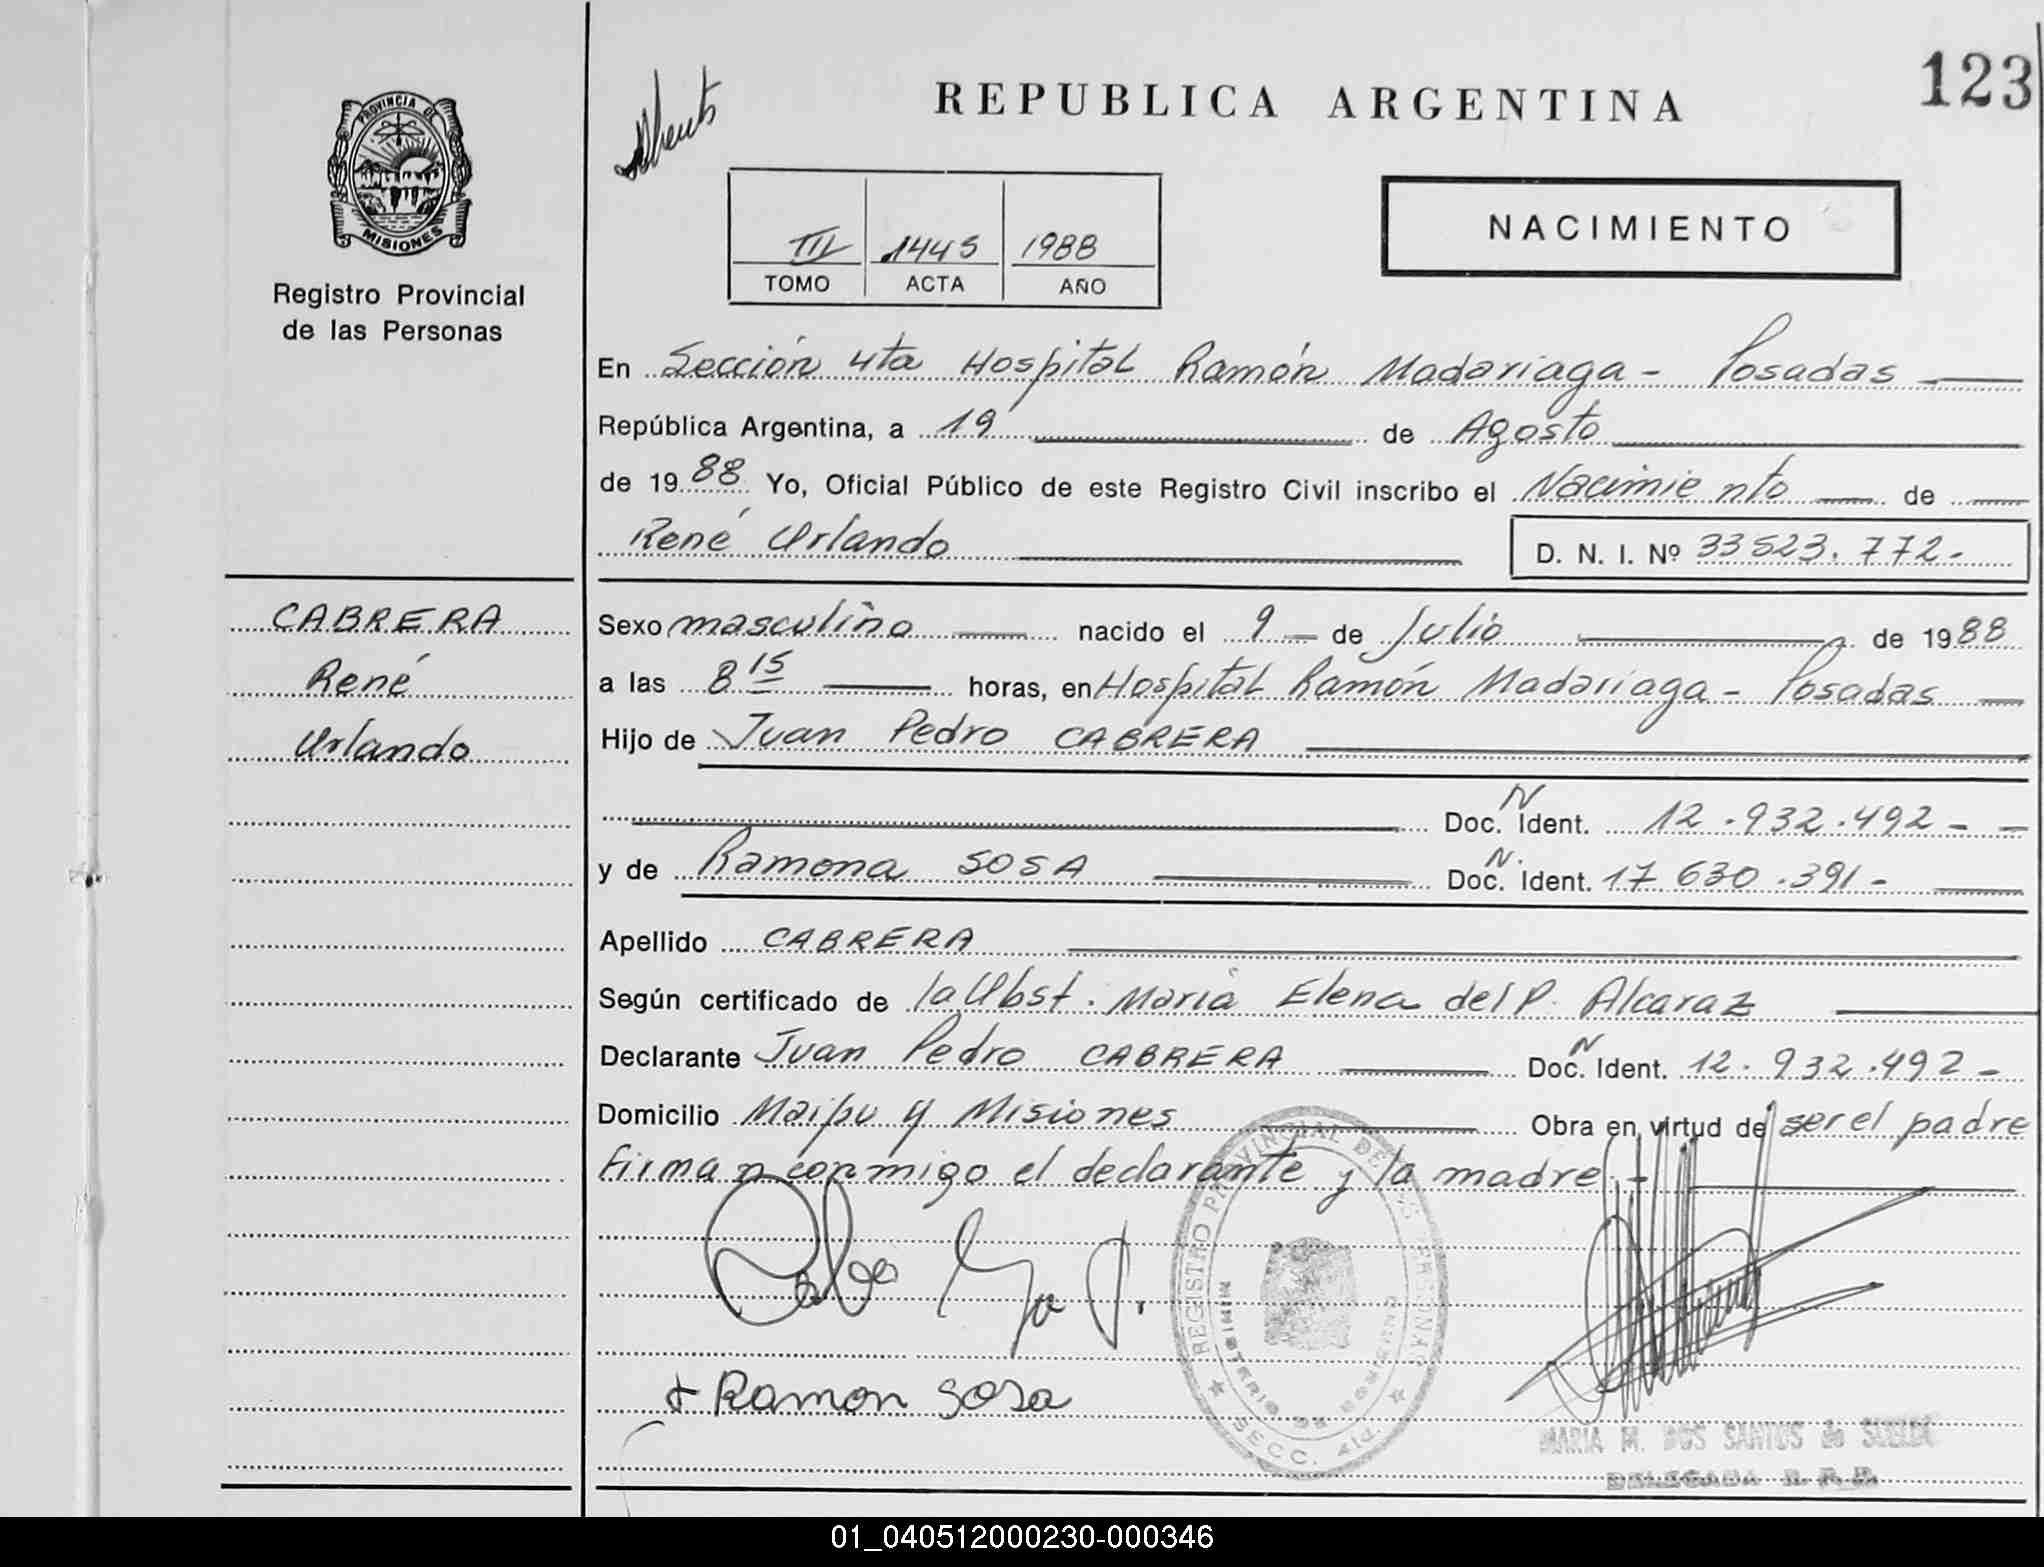 123
REPUBLICA ARGENTINA
PROVINCIA DE
MISIONES
Registro Provincial
de las Personas
III 1445 1988
TOMO ACTA AÑO
NACIMIENTO
En Sección 4ta Hospital Ramón Madariaga - Posadas
República Argentina, a 19 de Agosto
de 1988 Yo, Oficial Público de este Registro Civil inscribo el Nacimiento de
René Orlando D. N. I. Nº 33523.772.-
CABRERA
René
Orlando
Sexo masculino nacido el 9 de Julio de 1988
a las 8 15 horas, en Hospital Ramón Madariaga - Posadas
Hijo de Juan Pedro CABRERA
Doc. N Ident. 12.932.492 - -
y de Ramona SOSA Doc. N. Ident. 17 630.391 -
Apellido CABRERA
Según certificado de la Obst. María Elena del P. Alcaraz
Declarante Juan Pedro CABRERA Doc. N Ident. 12.932.492 -
Domicilio Maipu y Misiones Obra en virtud de ser el padre
Firman conmigo el declarante y la madre.-
REGISTRO PROVINCIAL DE LAS PERSONAS
MINISTERIO DE GOBIERNO
SECC. 4ta.
Ramon Sosa
MARIA M. DOS SANTOS de
DELEGADA R. P. P.
01_040512000230-000346